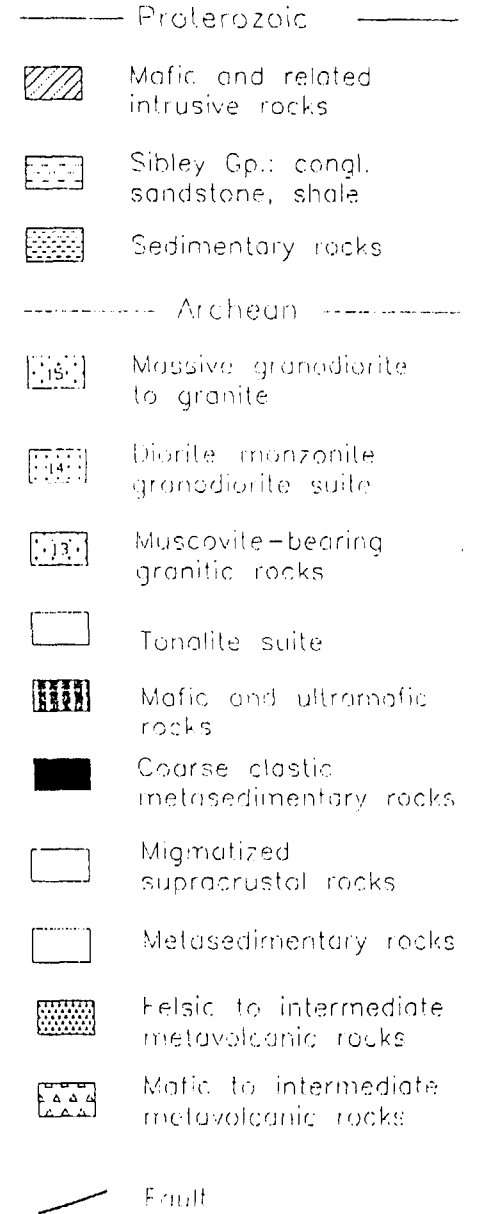 Proterozoic
Mafic and related
intrusive rocks
Sibley Gp.: congl.
sandstone, shale
Sedimentary rocks
Archean
15
Massive granodiorite
to granite
14
Diorite monzonite
granodiorite suite
13
Muscovite-bearing
granitic rocks
Tonalite suite
Mafic and ultramafic
rocks
Coarse clastic
metasedimentary rocks
Migmatized
supracrustal rocks
Metasedimentary rocks
Felsic to intermediate
metavolcanic rocks
Mafic to intermediate
metavolcanic rocks
Fault